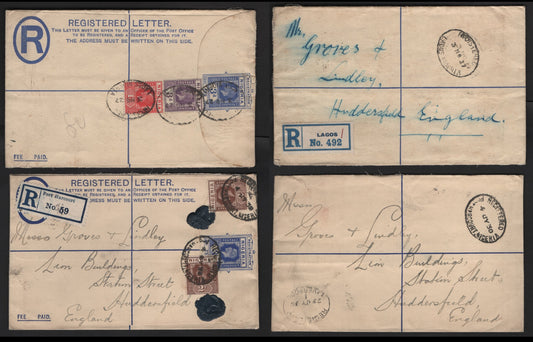 REGISTERED LETTER.
THIS LETTER MUST BE GIVEN TO AN OFFICER OF THE POST OFFICE
TO BE REGISTERED, AND A RECEIPT OBTAINED FOR IT.
THE ADDRESS MUST BE WRITTEN ON THIS SIDE.
R
FEE PAID.
Groves &
Lindley,
Huddersfield
England.
R
LAGOS
No. 492
REGISTERED LETTER.
THIS LETTER MUST BE GIVEN TO AN OFFICER OF THE POST OFFICE
TO BE REGISTERED, AND A RECEIPT OBTAINED FOR IT.
THE ADDRESS MUST BE WRITTEN ON THIS SIDE.
R
Port Harcourt
No. 59
Groves & Lindley,
Lion Buildings,
Station Street,
Huddersfield
England
FEE PAID.
Groves & Lindley,
Lion Buildings,
Station Street,
Huddersfield,
England
REGISTERED